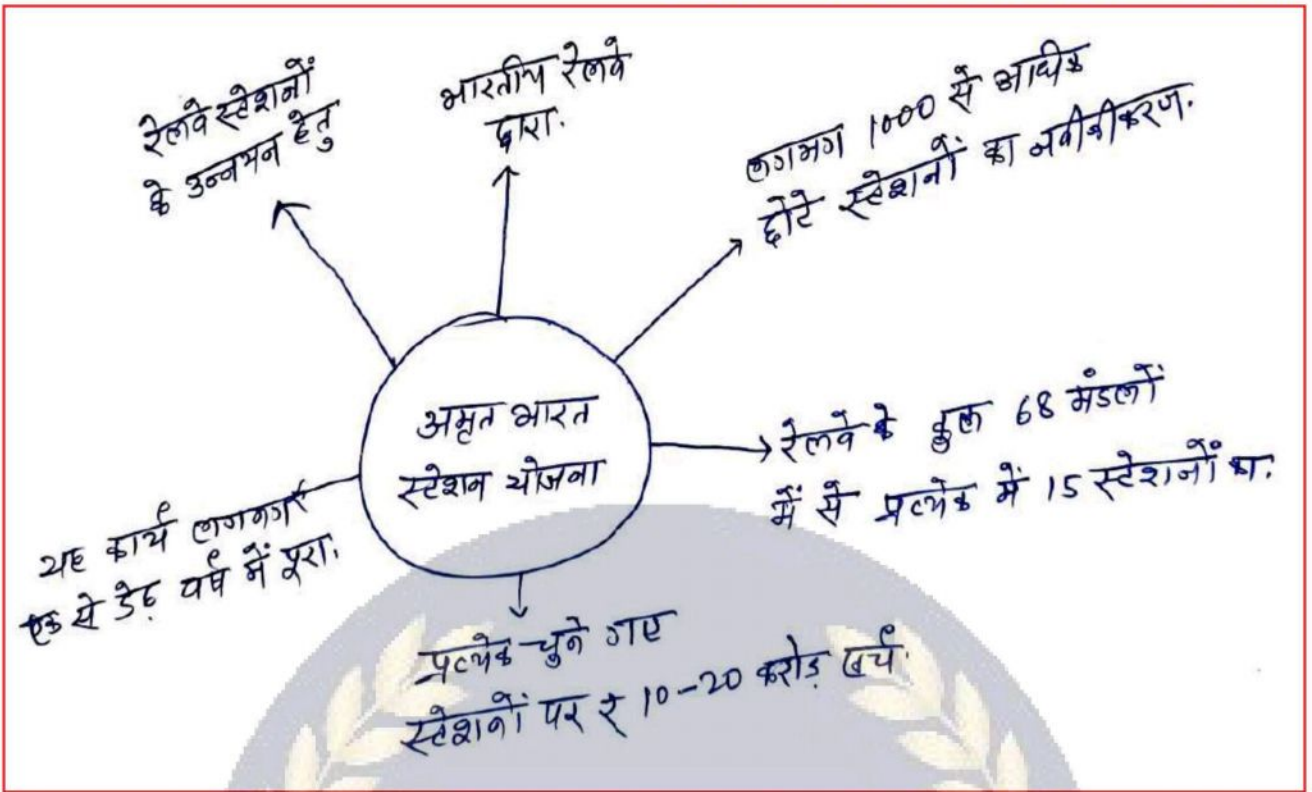 रेलवे स्टेशनों
के उन्नयन हेतु
भारतीय रेलवे
द्वारा.
लगभग 1000 से अधिक
छोटे स्टेशनों का नवीनीकरण.
अमृत भारत
स्टेशन योजना
रेलवे के कुल 68 मंडलों
में से प्रत्येक में 15 स्टेशनों का.
यह कार्य लगभग
एक से डेढ़ वर्ष में पूरा.
प्रत्येक चुने गए
स्टेशनों पर ₹ 10-20 करोड़ खर्च.